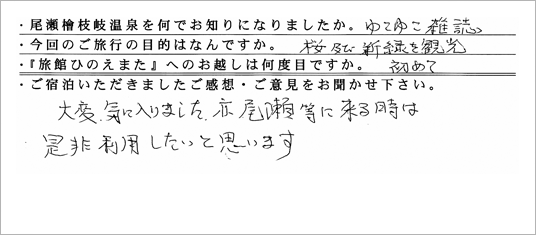 ・尾瀬檜枝岐温泉を何でお知りになりましたか。ゆこゆこ雑誌。
・今回のご旅行の目的はなんですか。桜及新緑を観光
・『旅館ひのえまた』へのお越しは何度目ですか。初めて
・ご宿泊いただきましたご感想・ご意見をお聞かせ下さい。
大変気に入りました、亦尾瀬等に来る時は
是非利用したいと思います